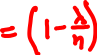 = (1 - λ/n)